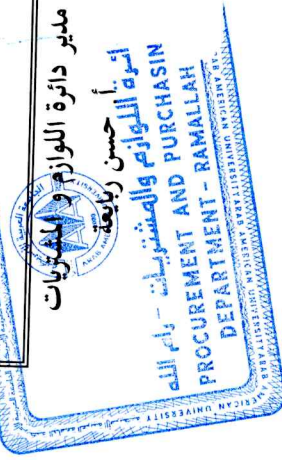 مدير دائرة اللوازم و المشتريات
أ. حسن ربايعة
دائرة اللوازم والمشتريات - رام الله
PROCUREMENT AND PURCHASIN
DEPARTMENT - RAMALLAH
AMERICAN UNIVERSITY ARAB AMERICAN UNIVERSITY ARAB